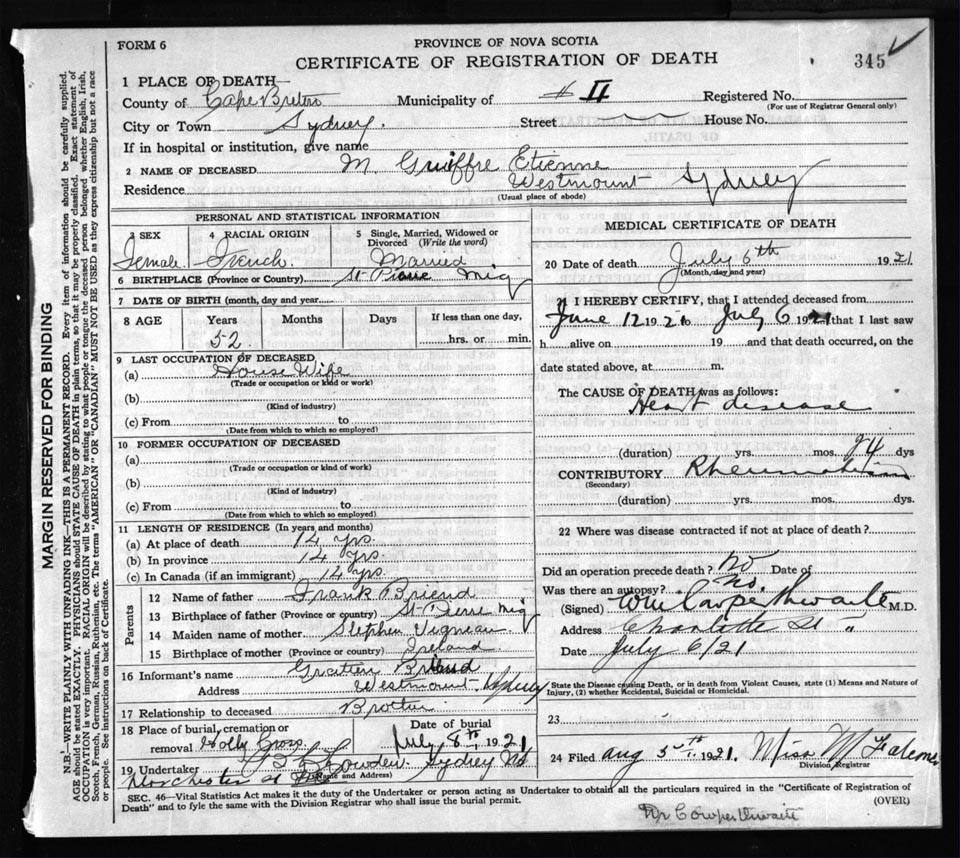 FORM 6
PROVINCE OF NOVA SCOTIA
CERTIFICATE OF REGISTRATION OF DEATH
345
1 PLACE OF DEATH—
County of Cape Breton Municipality of # II Registered No.
(For use of Registrar General only)
City or Town Sydney. Street House No.
If in hospital or institution, give name
2 NAME OF DECEASED M. Etienne
Residence Westmount Sydney
(Usual place of abode)
PERSONAL AND STATISTICAL INFORMATION
3 SEX 4 RACIAL ORIGIN 5 Single, Married, Widowed or Divorced (Write the word)
Female French. Married
6 BIRTHPLACE (Province or Country) St Pierre Miq
7 DATE OF BIRTH (month, day and year)
8 AGE Years Months Days If less than one day,
52 hrs. or min.
9 LAST OCCUPATION OF DECEASED
(a) House Wife
(Trade or occupation or kind or work)
(b)
(Kind of industry)
(c) From to
(Date from which to which so employed)
10 FORMER OCCUPATION OF DECEASED
(a)
(Trade or occupation or kind of work)
(b)
(Kind of industry)
(c) From to
(Date from which to which so employed)
11 LENGTH OF RESIDENCE (In years and months)
(a) At place of death 14 yrs.
(b) In province 14 yrs.
(c) In Canada (if an immigrant) 14 yrs.
Parents
12 Name of father Frank Briend
13 Birthplace of father (Province or country) St-Pierre Miq
14 Maiden name of mother Stephen Vigneau
15 Birthplace of mother (Province or country) Ireland
16 Informant's name Gratien Briend
Address Westmount Sydney
17 Relationship to deceased Brother
18 Place of burial, cremation or removal Holly Cross Date of burial July 8th, 1921
19 Undertaker Sydney NS
(Name and Address)
Dorchester St
MEDICAL CERTIFICATE OF DEATH
20 Date of death July 6th 1921
(Month, day and year)
I HEREBY CERTIFY, that I attended deceased from
June 12 1921 to July 6 1921 that I last saw
h alive on 19 and that death occurred, on the
date stated above, at m.
The CAUSE OF DEATH was as follows:
Heart disease
(duration) yrs. mos. 24 dys
CONTRIBUTORY Rheumatism
(Secondary)
(duration) yrs. mos. dys.
22 Where was disease contracted if not at place of death?
Did an operation precede death? No Date of
Was there an autopsy? No.
(Signed) Cowperthwaite M.D.
Address Charlotte St "
Date July 6/21
State the Disease causing Death, or in death from Violent Causes, state (1) Means and Nature of Injury, (2) whether Accidental, Suicidal or Homicidal.
23
24 Filed Aug 5th, 1921. Miss M
Division Registrar
SEC. 46—Vital Statistics Act makes it the duty of the Undertaker or person acting as Undertaker to obtain all the particulars required in the "Certificate of Registration of
Death" and to fyle the same with the Division Registrar who shall issue the burial permit.
(OVER)
Dr Cowperthwaite
MARGIN RESERVED FOR BINDING
N.B.—WRITE PLAINLY WITH UNFADING INK—THIS IS A PERMANENT RECORD. Every item of information should be carefully supplied.
AGE should be stated EXACTLY. PHYSICIANS should STATE CAUSE OF DEATH in plain terms, so that it may be properly classified. Exact statement of
OCCUPATION is very important. RACIAL ORIGIN will be described by stating to what people or tongue the deceased person belonged whether English, Irish,
Scotch, French, German, Russian, Ruthenian, etc. The terms "AMERICAN" OR "CANADIAN" MUST NOT BE USED as they express citizenship but not a race
or people. See instructions on back of Certificate.